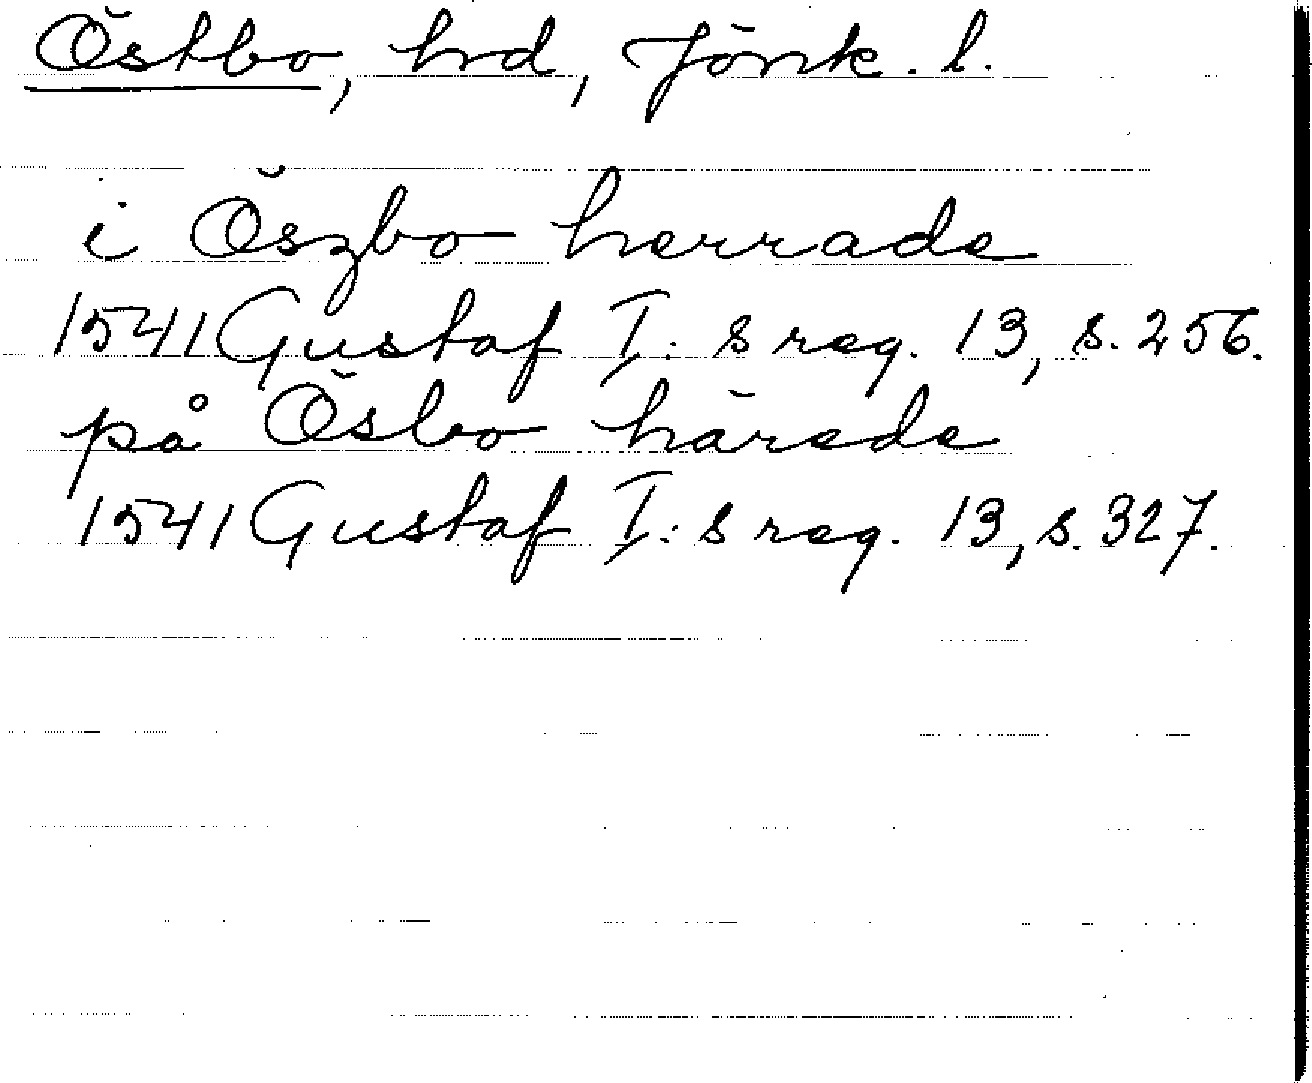 Östbo, hrd, Jönk. l.
i Öszbo herrade
1541 Gustaf I: s reg. 13, s. 256.
på Ösbo härede
1541 Gustaf I: s reg. 13, s. 327.